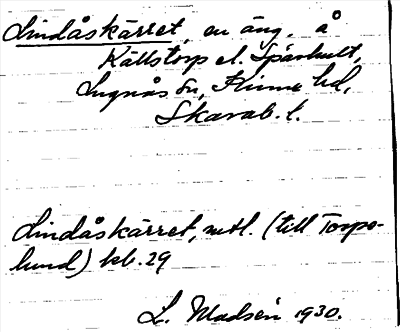 Lindåskärret, en äng, å
Källstorp el. Spärhult,
Lugnås sn, Kinne hd,
Skarab. l.
Lindåskärret, mtl. (till Torpo-
lund) kb. 29
L. Madsén 1930.